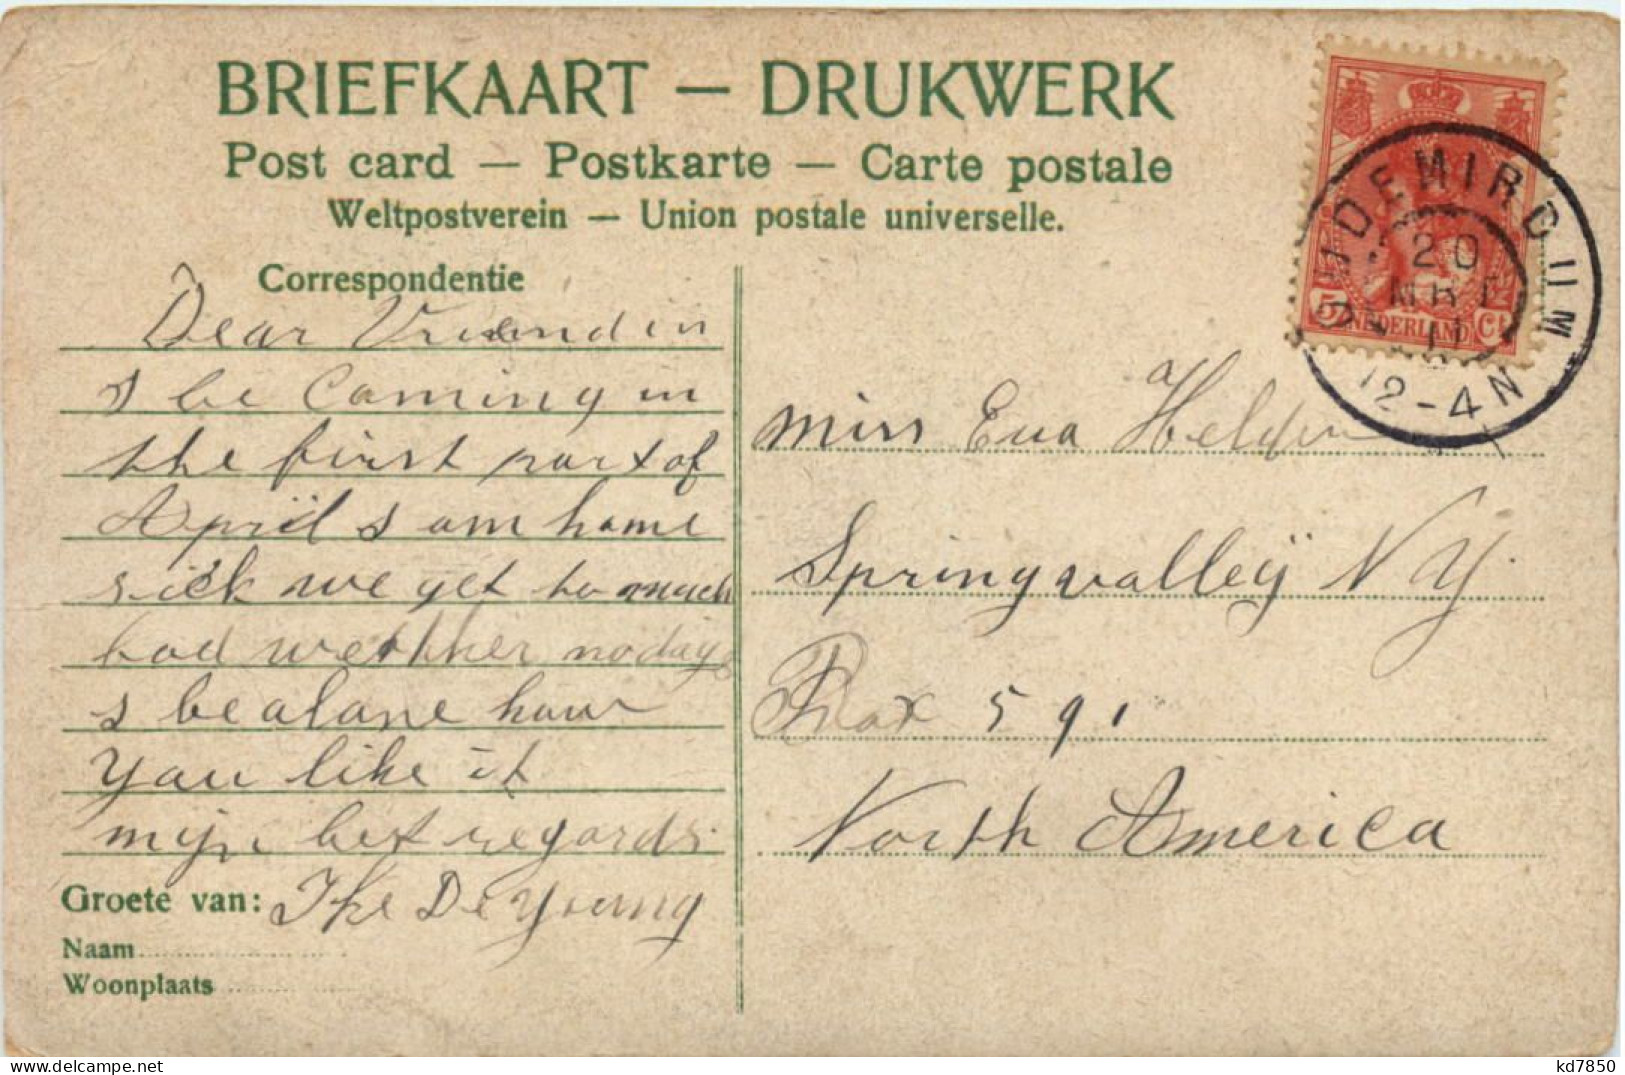 BRIEFKAART — DRUKWERK
Post card — Postkarte — Carte postale
Weltpostverein — Union postale universelle.
Correspondentie
Dear Vriendin
I be Coming in
the first part of
April I am home
sick we get to much
bad wethher no days
I be alone how
You like it
mijn best regards
Groete van: Ike De Young
Naam
Woonplaats
5 NEDERLAND Ct
OUDEMIRDUM
20
MRT
11
12-4N
Miss Eva Helder
Springvalley N Y.
Box 591
North America
kd7850